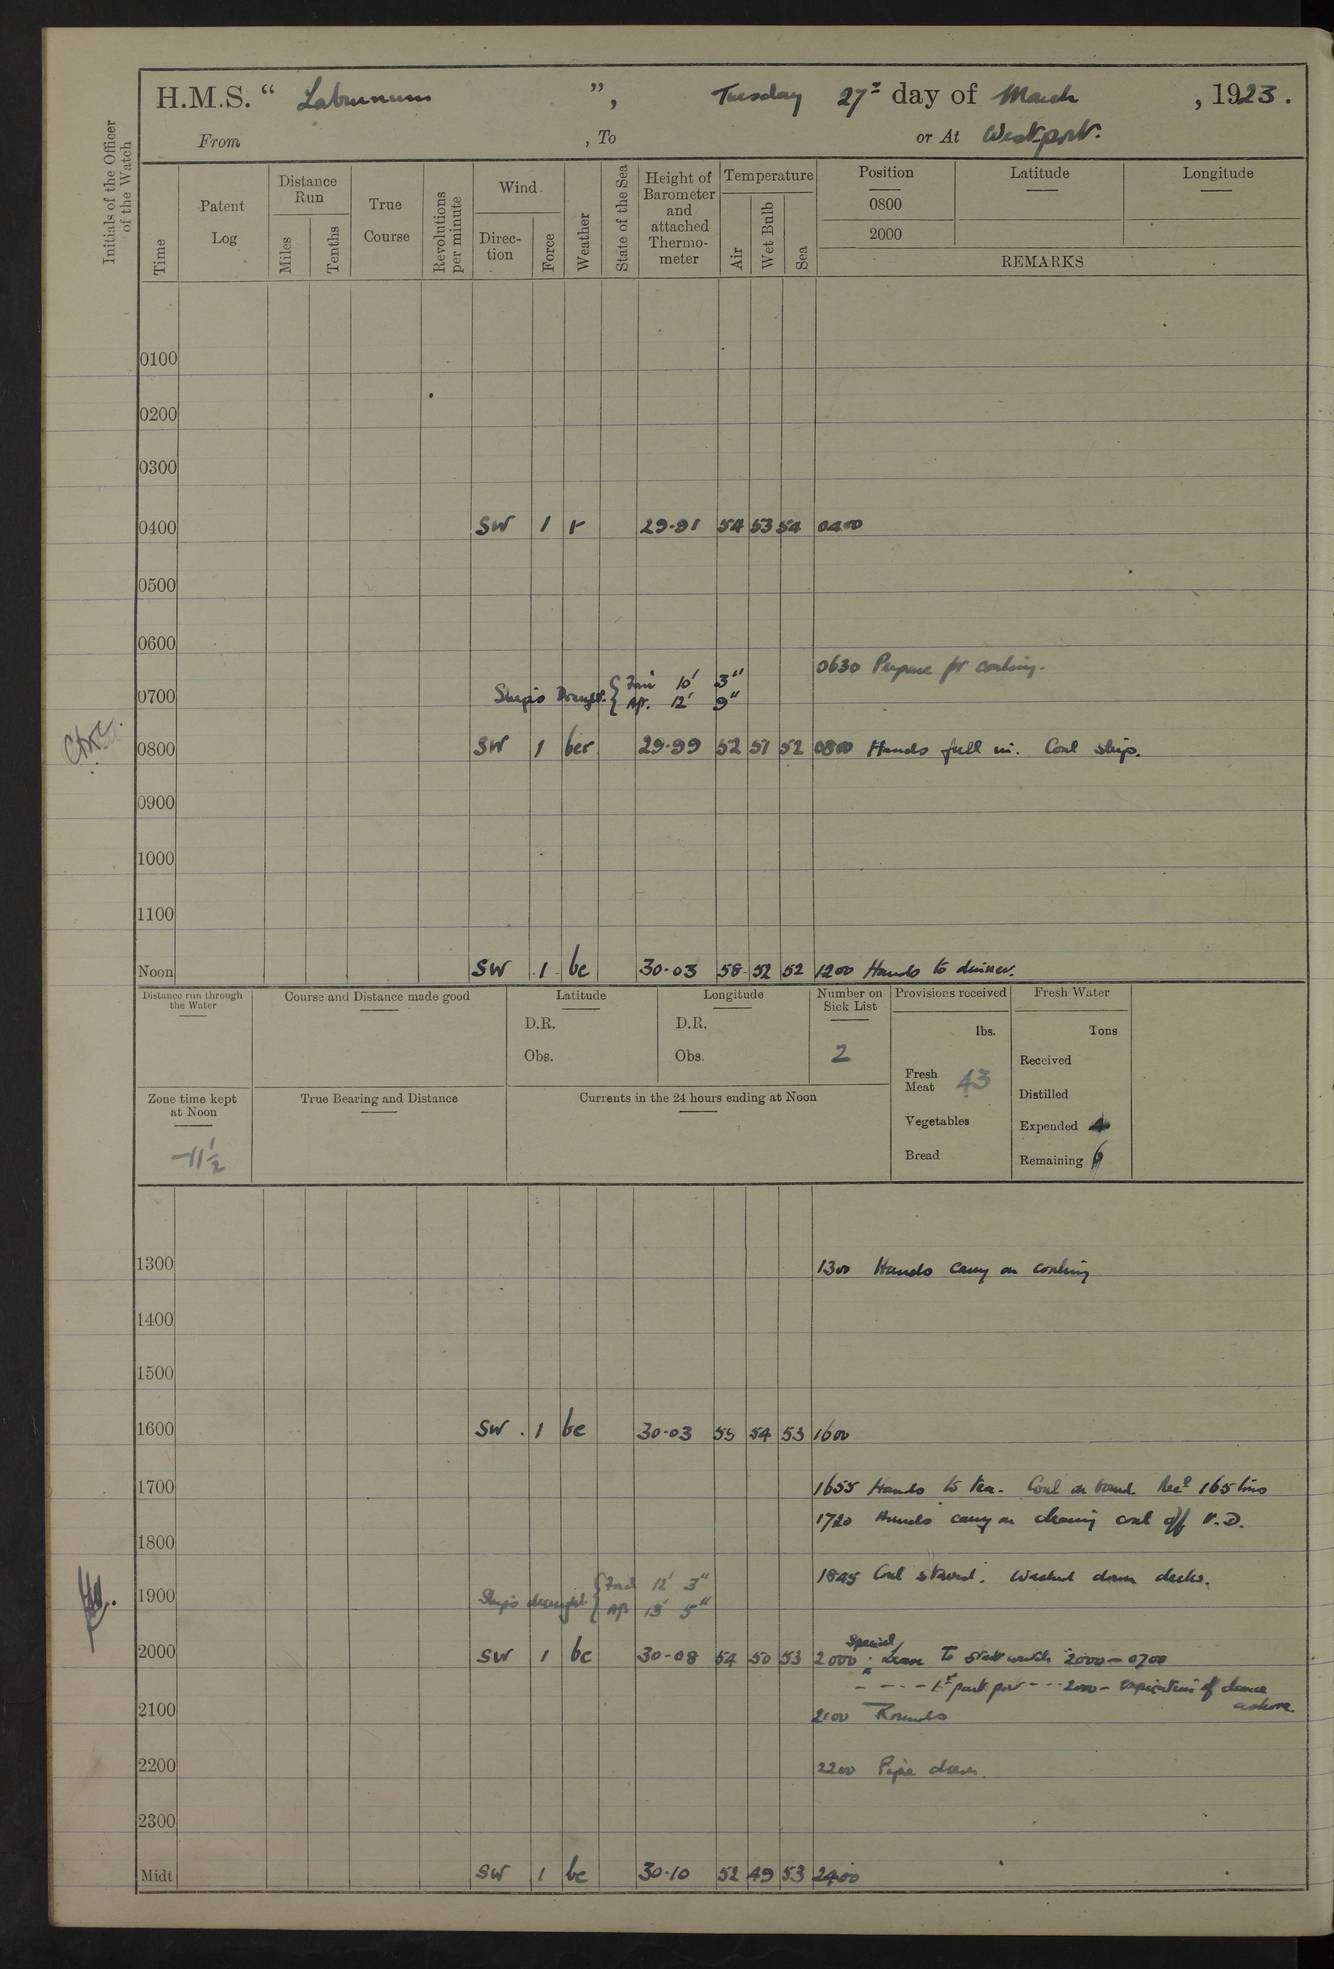 H.M.S. “ Laburnum ”, Tuesday 27th day of March , 1923.
From , To or At Westport.
Initials of the Officer of the Watch
Time
Patent Log
Distance Run
Miles
Tenths
True Course
Revolutions per minute
Wind
Direction
Force
Weather
State of the Sea
Height of Barometer and attached Thermometer
Temperature
Air
Wet Bulb
Sea
Position
0800
2000
Latitude
Longitude
REMARKS
0100
0200
0300
0400 SW 1 r 29.91 54 53 54 0400
0500
0600
0630 Prepare for coaling.
0700 Ship's Draught. { For'd 10' 3"
Aft. 12' 9"
0800 SW 1 bcr 29.99 52 51 52 0800 Hands fell in. Coal ship.
0900
1000
1100
Noon SW 1 bc 30.03 58 52 52 1200 Hands to dinner.
Distance run through the Water
Course and Distance made good
Latitude
D.R.
Obs.
Longitude
D.R.
Obs.
Number on Sick List
2
Provisions received
lbs.
Fresh Meat 43
Vegetables
Bread
Fresh Water
Tons
Received
Distilled
Expended 4
Remaining 6
Zone time kept at Noon
-11½
True Bearing and Distance
Currents in the 24 hours ending at Noon
1300 1300 Hands carry on coaling
1400
1500
1600 SW 1 bc 30.03 55 54 53 1600
1700 1655 Hands to tea. Coal on board. Recd 165 tons
1720 Hands carry on clearing coal off U.D.
1800
1845 Coal stowed. Washed down decks.
1900 Ship's draught { For'd 12' 3"
Aft 13' 5"
2000 SW 1 bc 30.08 54 50 53 2000 Special Leave to 2000 - 0700
- - - - 1st part port - - - 2000 - expiration of dance ashore
2100 2100 Rounds
2200 2200 Pipe down.
2300
Midt SW 1 bc 30.10 52 49 53 2400